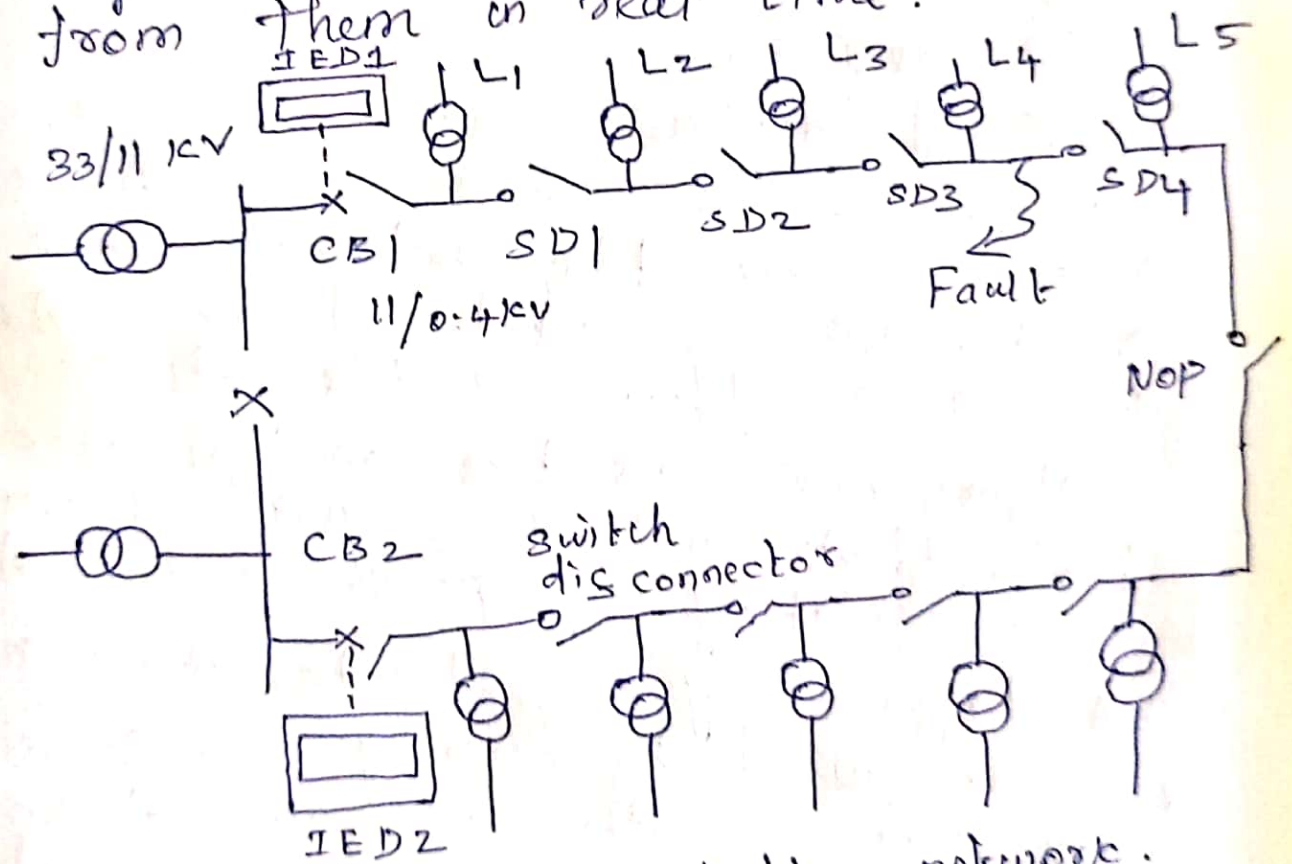 from them in real time.
IED1
L1
L2
L3
L4
L5
33/11 KV
CB1
SD1
SD2
SD3
SD4
11/0.4KV
Fault
NOP
CB2
switch
disconnector
IED2
network.